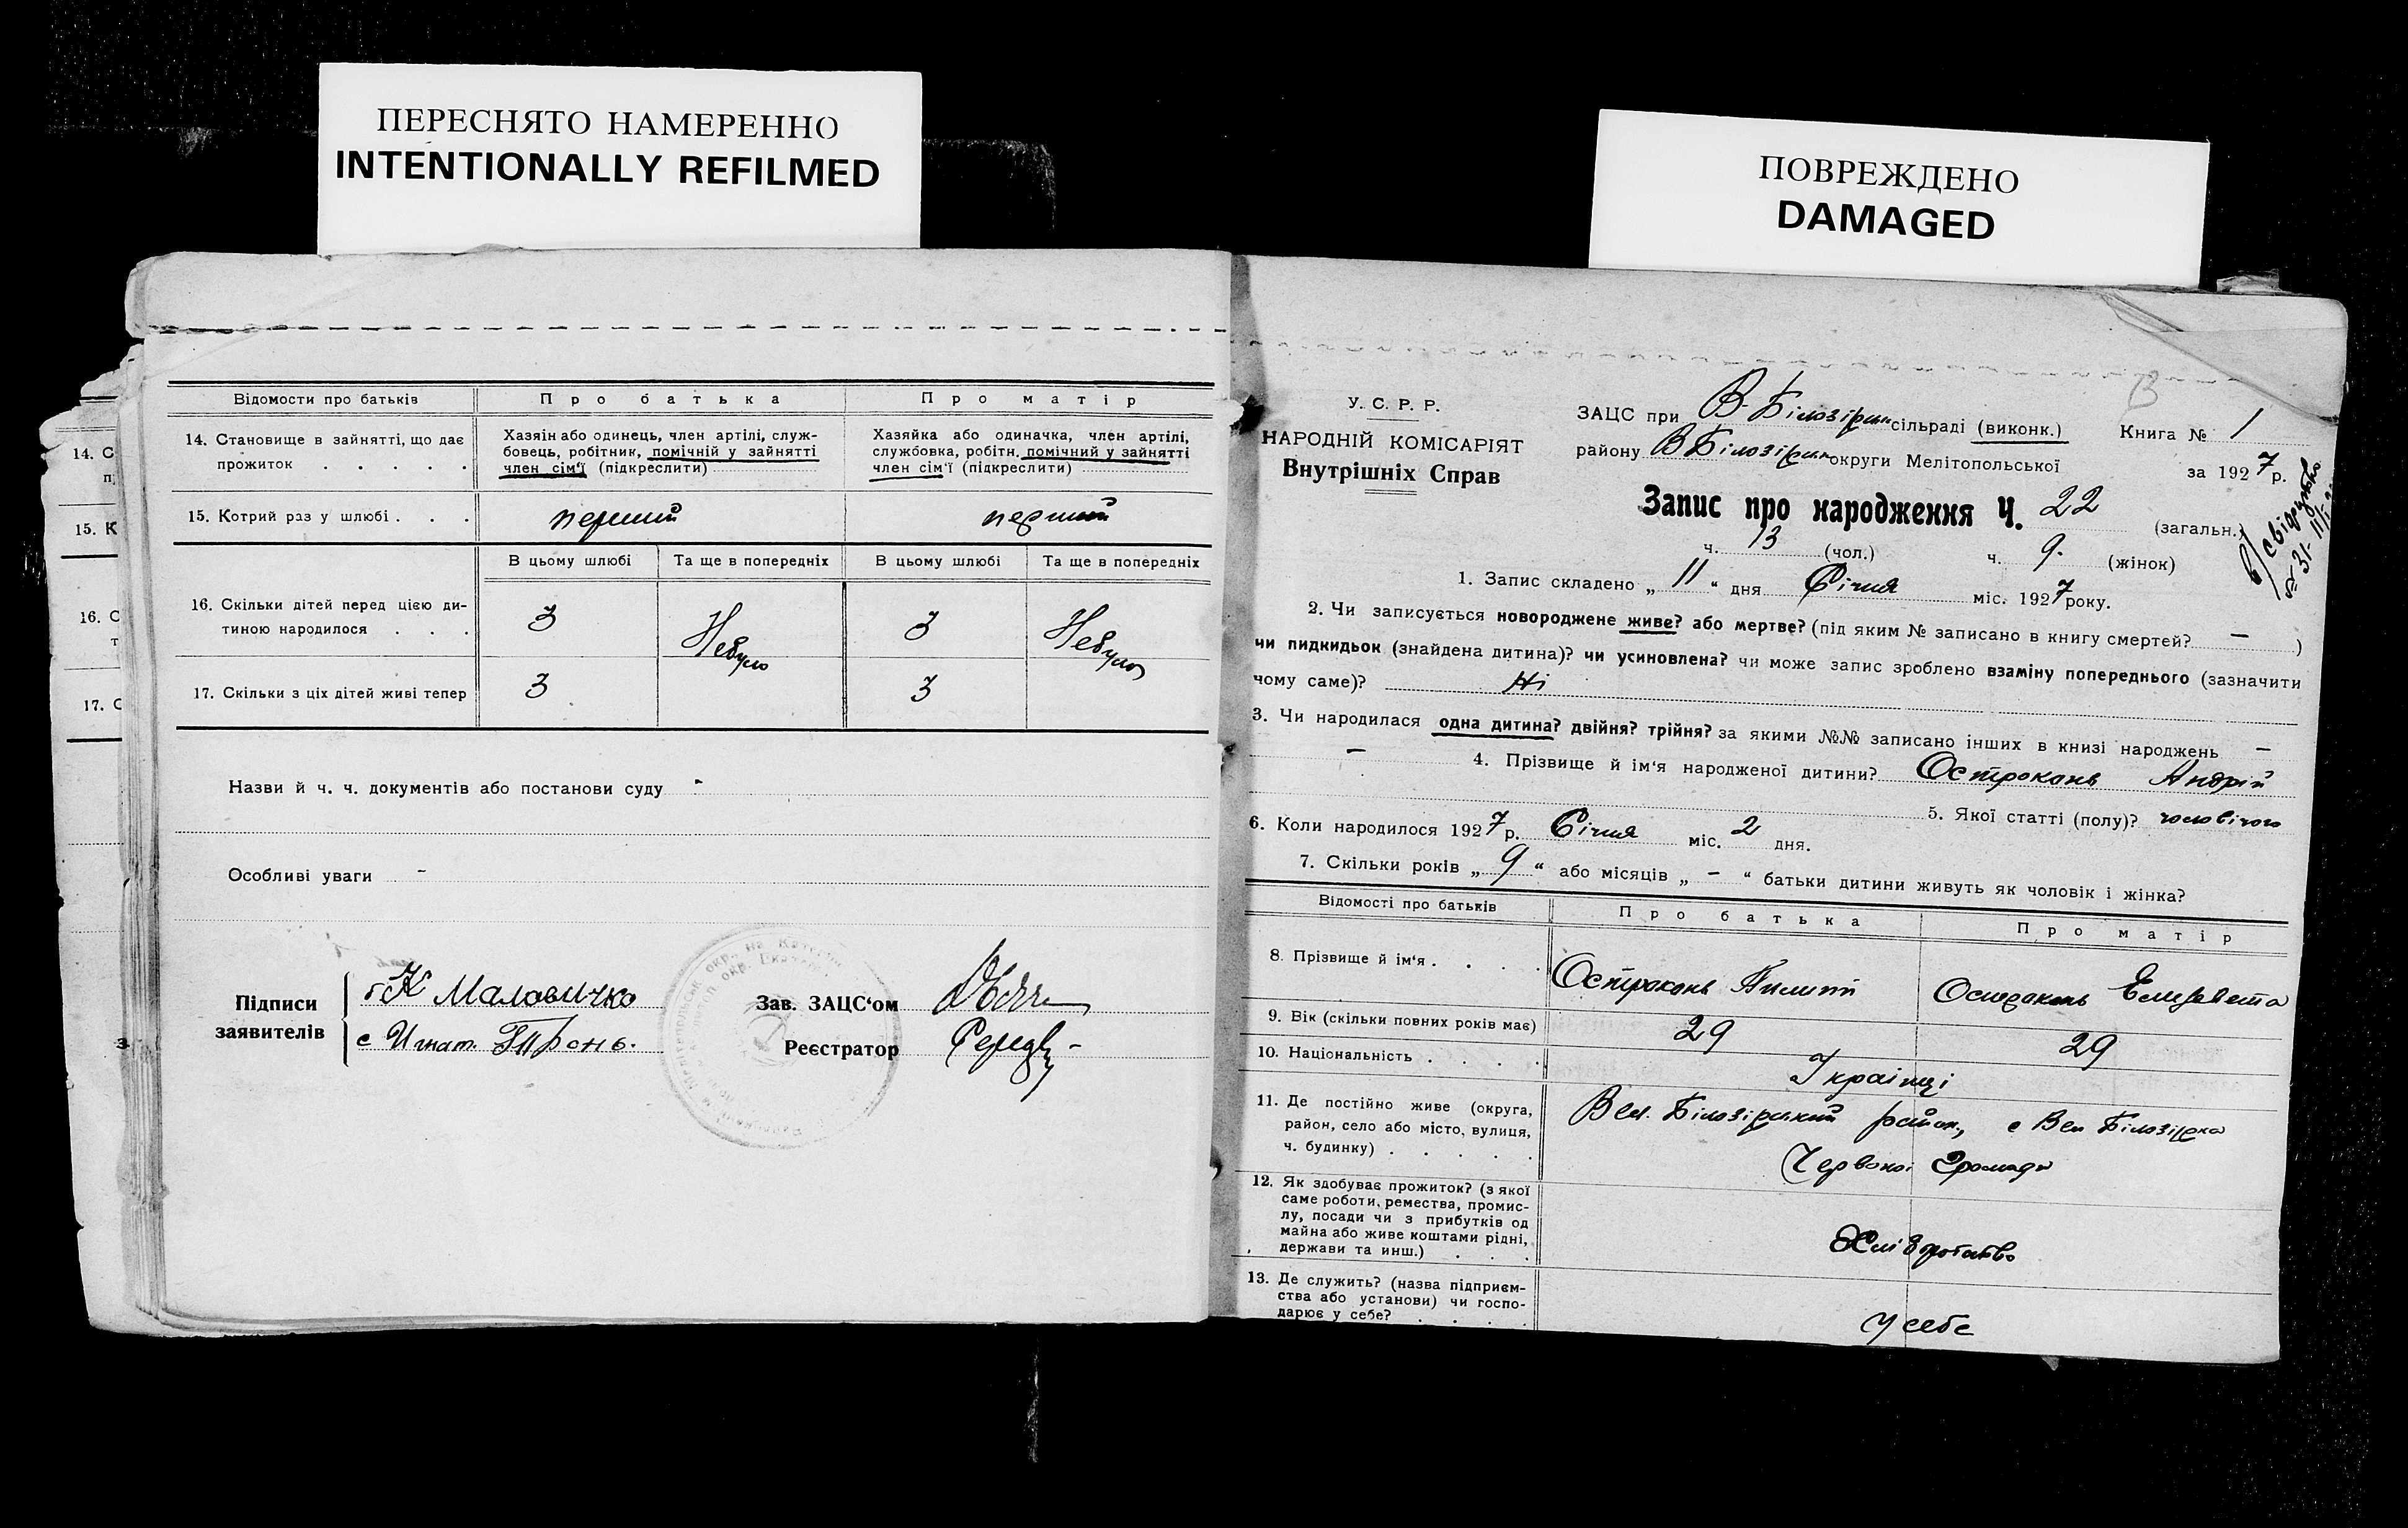 ПЕРЕСНЯТО НАМЕРЕННО
INTENTIONALLY REFILMED
ПОВРЕЖДЕНО
DAMAGED
Відомости про батьків Про батька Про матір
14. Становище в зайнятті, що дає прожиток . . . . .
Хазяїн або одинець, член артілі, служ-
бовець, робітник, помічній у зайнятті
член сім'ї (підкреслити)
Хазяйка або одиначка, член артілі,
службовка, робітн. помічний у зайнятті
член сім'ї (підкреслити)
15. Котрий раз у шлюбі . . . перший перший
В цьому шлюбі Та ще в попередніх В цьому шлюбі Та ще в попередніх
16. Скільки дітей перед цією ди-
тиною народилося . . . 3 Небуло 3 Небуло
17. Скільки з ціх дітей живі тепер 3 3
Назви й ч. ч. документів або постанови суду -
Особливі уваги -
Підписи
заявителів
К Маловичко
с Игнат.
Зав. ЗАЦС'ом
Реєстратор
14. С
15. К
16. С
17. С
У. С. Р. Р.
НАРОДНІЙ КОМІСАРІЯТ
Внутрішніх Справ
ЗАЦС при В-Білозірк сільраді (виконк.) Книга № 1
району В Білозірк округи Мелітопольської за 1927 р.
Запис про народження Ч. 22 (загальн.)
ч. 13 (чол.) ч. 9. (жінок)
1. Запис складено „ 11 “ дня Січня міс. 1927 року.
2. Чи записується новороджене живе? або мертве? (під яким № записано в книгу смертей? — )
чи пидкидьок (знайдена дитина)? чи усиновлена? чи може запис зроблено взаміну попереднього (зазначити
чому саме)? Ні
3. Чи народилася одна дитина? двійня? трійня? за якими №№ записано інших в книзі народжень —
— 4. Прізвище й ім'я народженої дитини? Остроконь Андрій
5. Якої статті (полу)? чоловічого
6. Коли народилося 1927 р. Січня міс. 2 дня.
7. Скільки років „ 9 “ або місяців „ – “ батьки дитини живуть як чоловік і жінка?
Відомості про батьків Про батька Про матір
8. Прізвище й ім'я . . . . Остроконь Пилип Остроконь Елизавета
9. Вік (скільки повних років має) 29 29
10. Національність . . . . Украінці
11. Де постійно живе (округа,
район, село або місто, вулиця,
ч. будинку) . . . . .
Вел. Білозірський район, с Вел Білозірка
Червоноі Громади
12. Як здобуває прожиток? (з якої
саме роботи, ремества, промис-
лу, посади чи з прибутків од
майна або живе коштами рідні,
держави та инш.) . . .
Хліборобство
13. Де служить? (назва підприєм-
ства або установи) чи госпо-
дарює у себе? . . . .
У себе